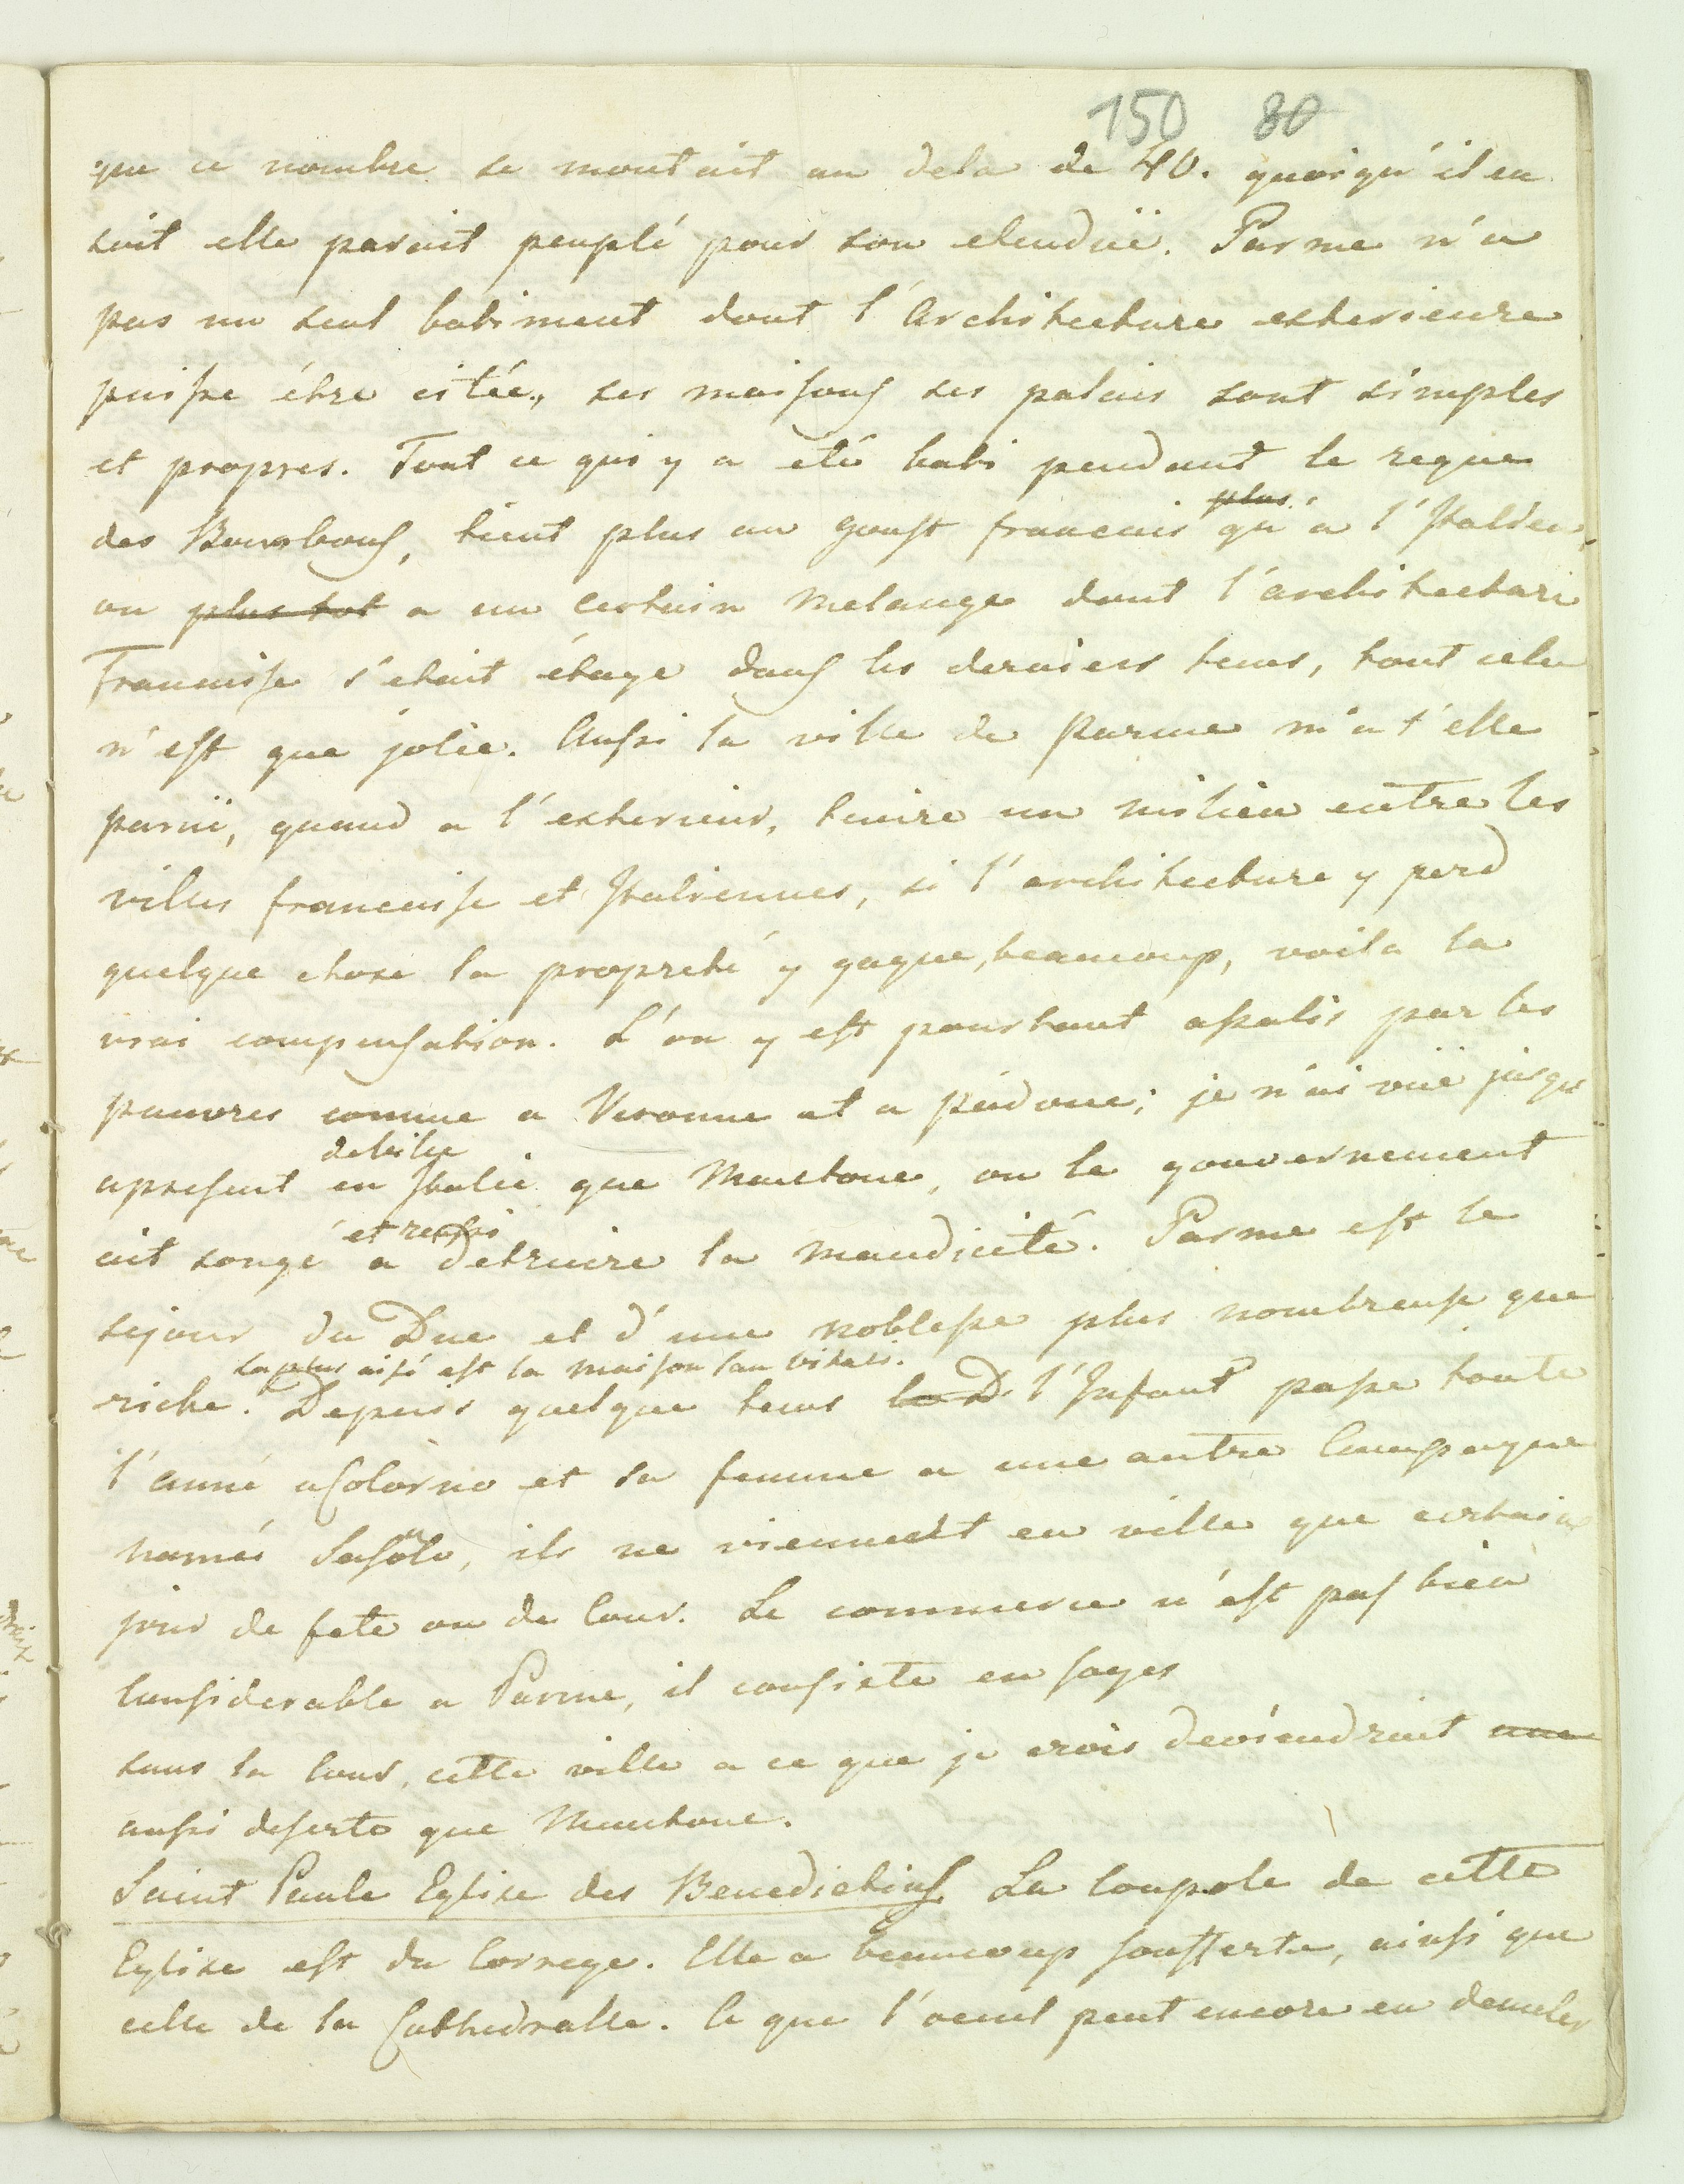 150 80
que ce nombre se montait au dela de 40. quoiqu'il en
soit elle parait peuplé pour son etenduë. Parme n'a
pas un seul batiment dont l'Architecture exterieure
puisse étre citée, ses maisons ses palais sont simples
et propres. Tout ce qui y a eté bati pendant le regne
plus
des Bourbons, tient plus au goust francais qu'a l'Italien,
ou plus tot a un certain Melange dont l'architecture
Francaise s'etait étaye dans les derniers tems, tout cela
n'est que jolie. Aussi la ville de Parme m'a t'elle
paruë, quand a l'exterieur, tenire un milieu entre les
villes francaise et Italiennes, si l'architecture y perd
quelque chose la propreté y gagne, beaucoup, voila la
vrai compensation. L'on y est pourtant assalis par les
pauvres comme a Veronne et a padoue; je n'ai vüe jusqu
de ville
apresent en Italie que Mantoue, ou le gouvernement
et reussi
ait songé a detruire la Mandicité. Parme est le
sejour du Duc et d'une noblesse plus nombreuse que
la plus aisé est la maison san vitali.
riche. Depuis quelque tems le D. l'Infant passe toute
l'anné a Colorno et sa femme a une autre Campagne
només Sasolo, ils ne viennent en ville que certains
jour de fete ou de Cour. Le commerce n'est pas bien
Considerable a Parme, il consiste en soyes
sans la Cour, cette ville a ce que je crois deviendrait une
aussi deserte que Mantoue.
Saint Paule Eglise des Benedictins La Coupole de cette
Eglise est du Correge. Elle a beaucoup soufferte, ainsi que
celle de la Cathedralle. Ce que l'oeuil peut encore en demeler